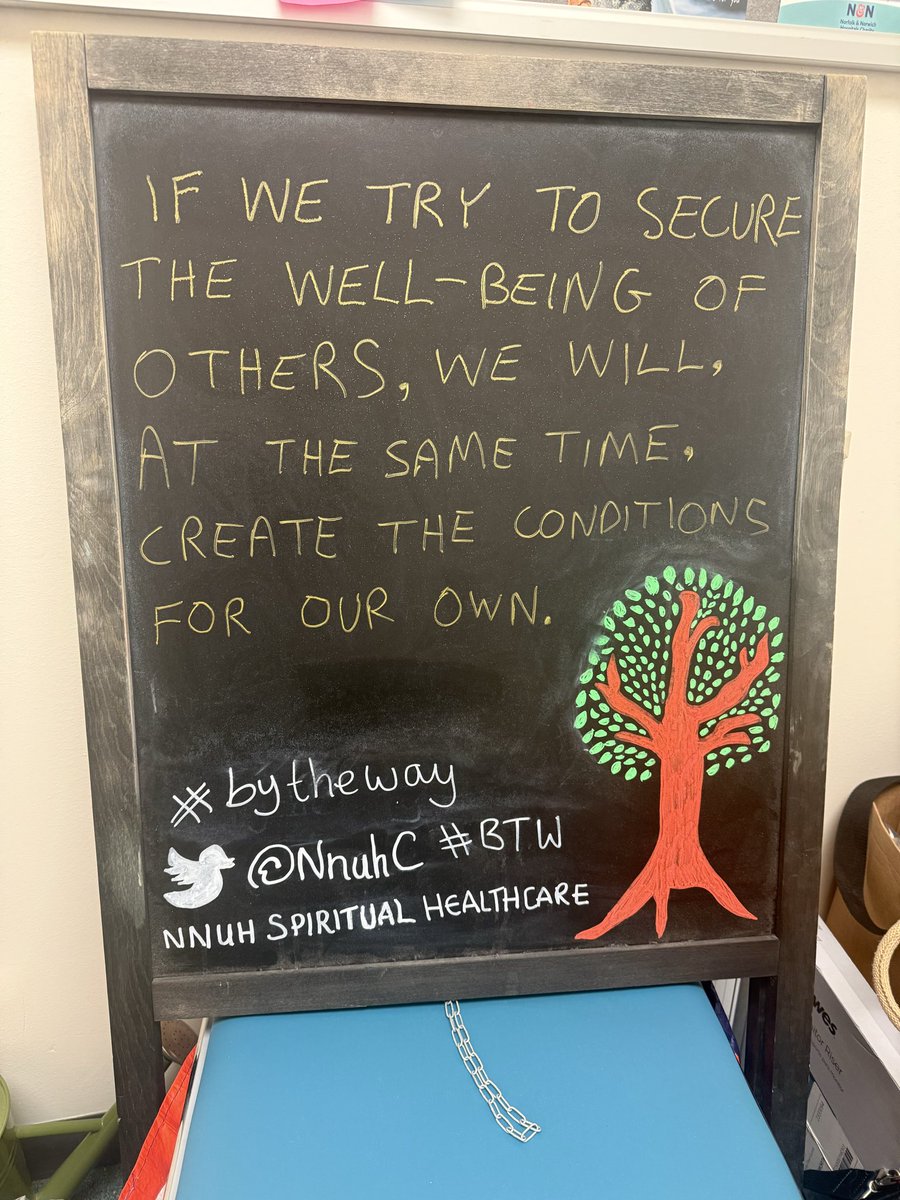 N&N
Norfolk & Norwich
Hospitals Charity
IF WE TRY TO SECURE
THE WELL-BEING OF
OTHERS, WE WILL,
AT THE SAME TIME,
CREATE THE CONDITIONS
FOR OUR OWN.
#bytheway
@NnuhC #BTW
NNUH SPIRITUAL HEALTHCARE